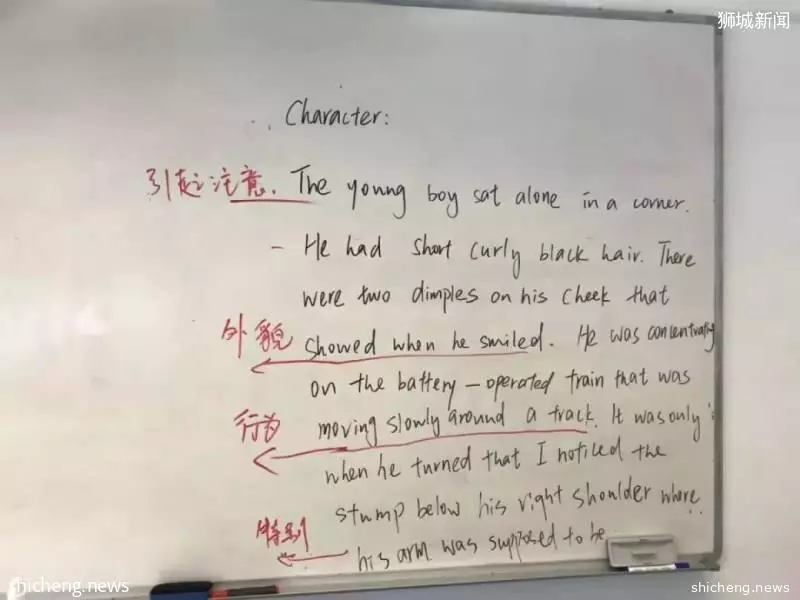 狮城新闻
Character:
引起注意. The young boy sat alone in a corner.
- He had short curly black hair. There
were two dimples on his cheek that
外貌 showed when he smiled. He was concentrating
on the battery-operated train that was
行为 moving slowly around a track. It was only
when he turned that I noticed the
stump below his right shoulder where
特别 his arm was supposed to be.
shicheng.news
shicheng.news